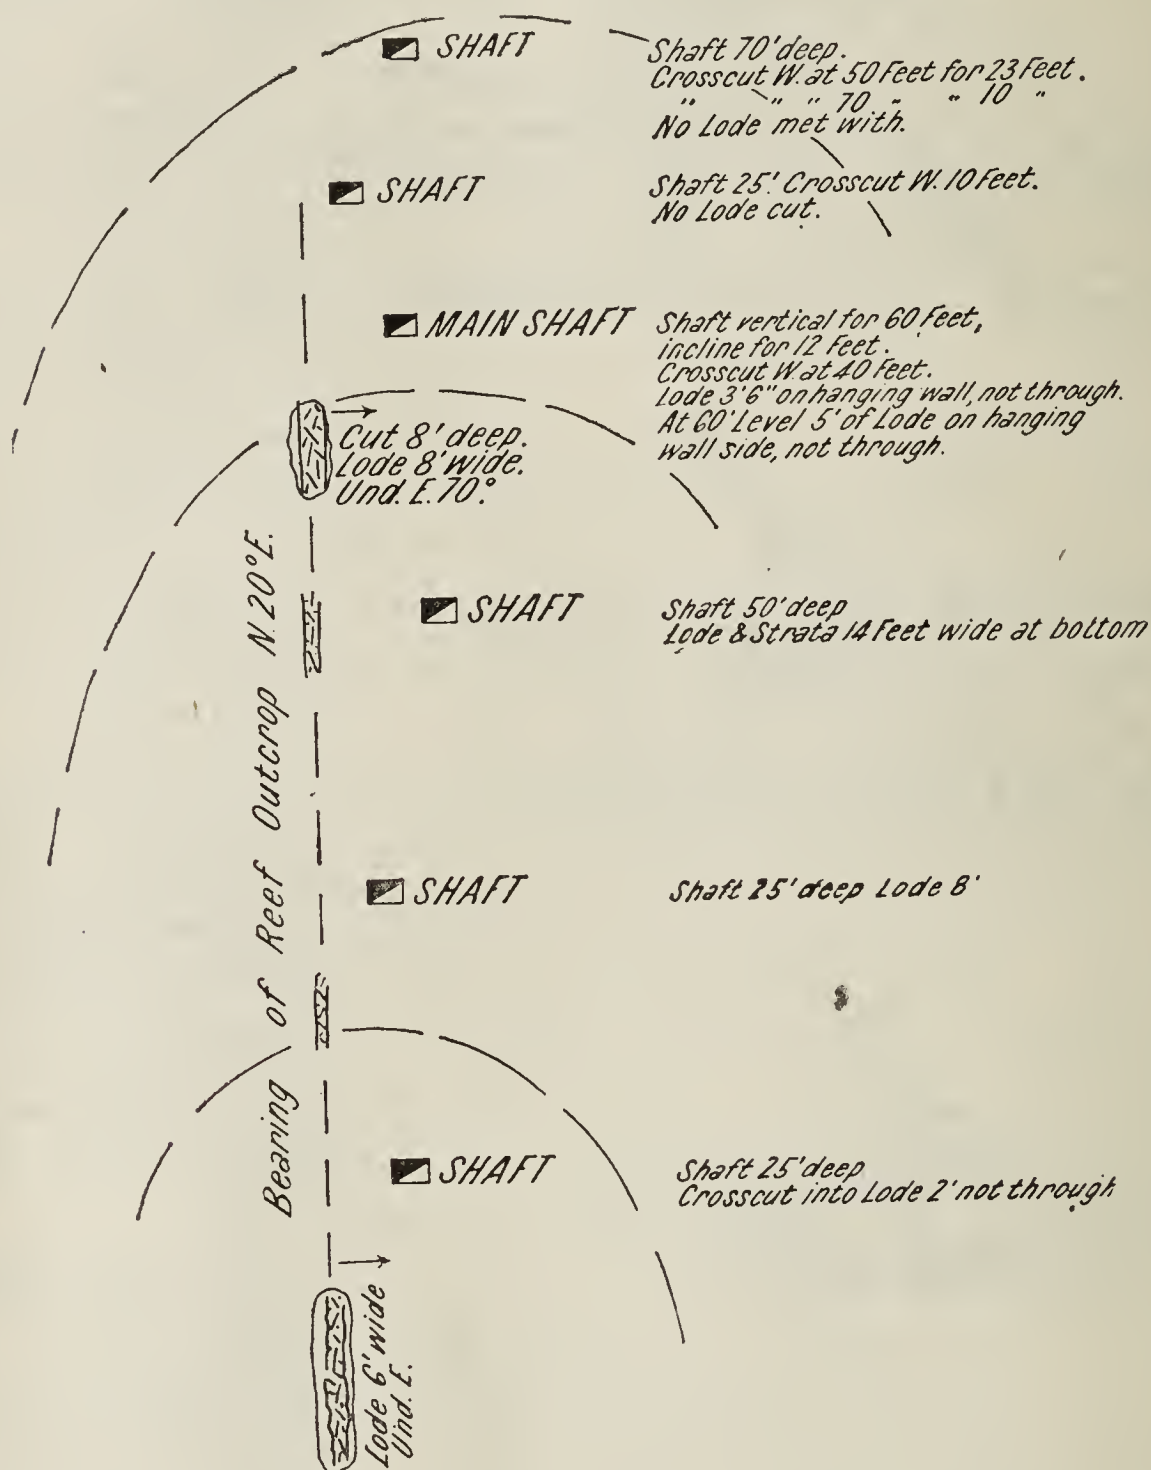 SHAFT
Shaft 70' deep.
Crosscut W. at 50 Feet for 23 Feet.
" " " 70 " " 10 "
No Lode met with.
SHAFT
Shaft 25'. Crosscut W. 10 Feet.
No Lode cut.
MAIN SHAFT
Shaft vertical for 60 Feet,
incline for 12 Feet.
Crosscut W. at 40 Feet.
Lode 3'6" on hanging wall, not through.
At 60' Level 5' of Lode on hanging
wall side, not through.
Cut 8' deep.
Lode 8' wide.
Und. E. 70°.
SHAFT
Shaft 50' deep
Lode & Strata 14 Feet wide at bottom
Bearing of Reef Outcrop N. 20° E.
SHAFT
Shaft 25' deep Lode 8'
SHAFT
Shaft 25' deep
Crosscut into Lode 2' not through
Lode 6' wide
Und. E.